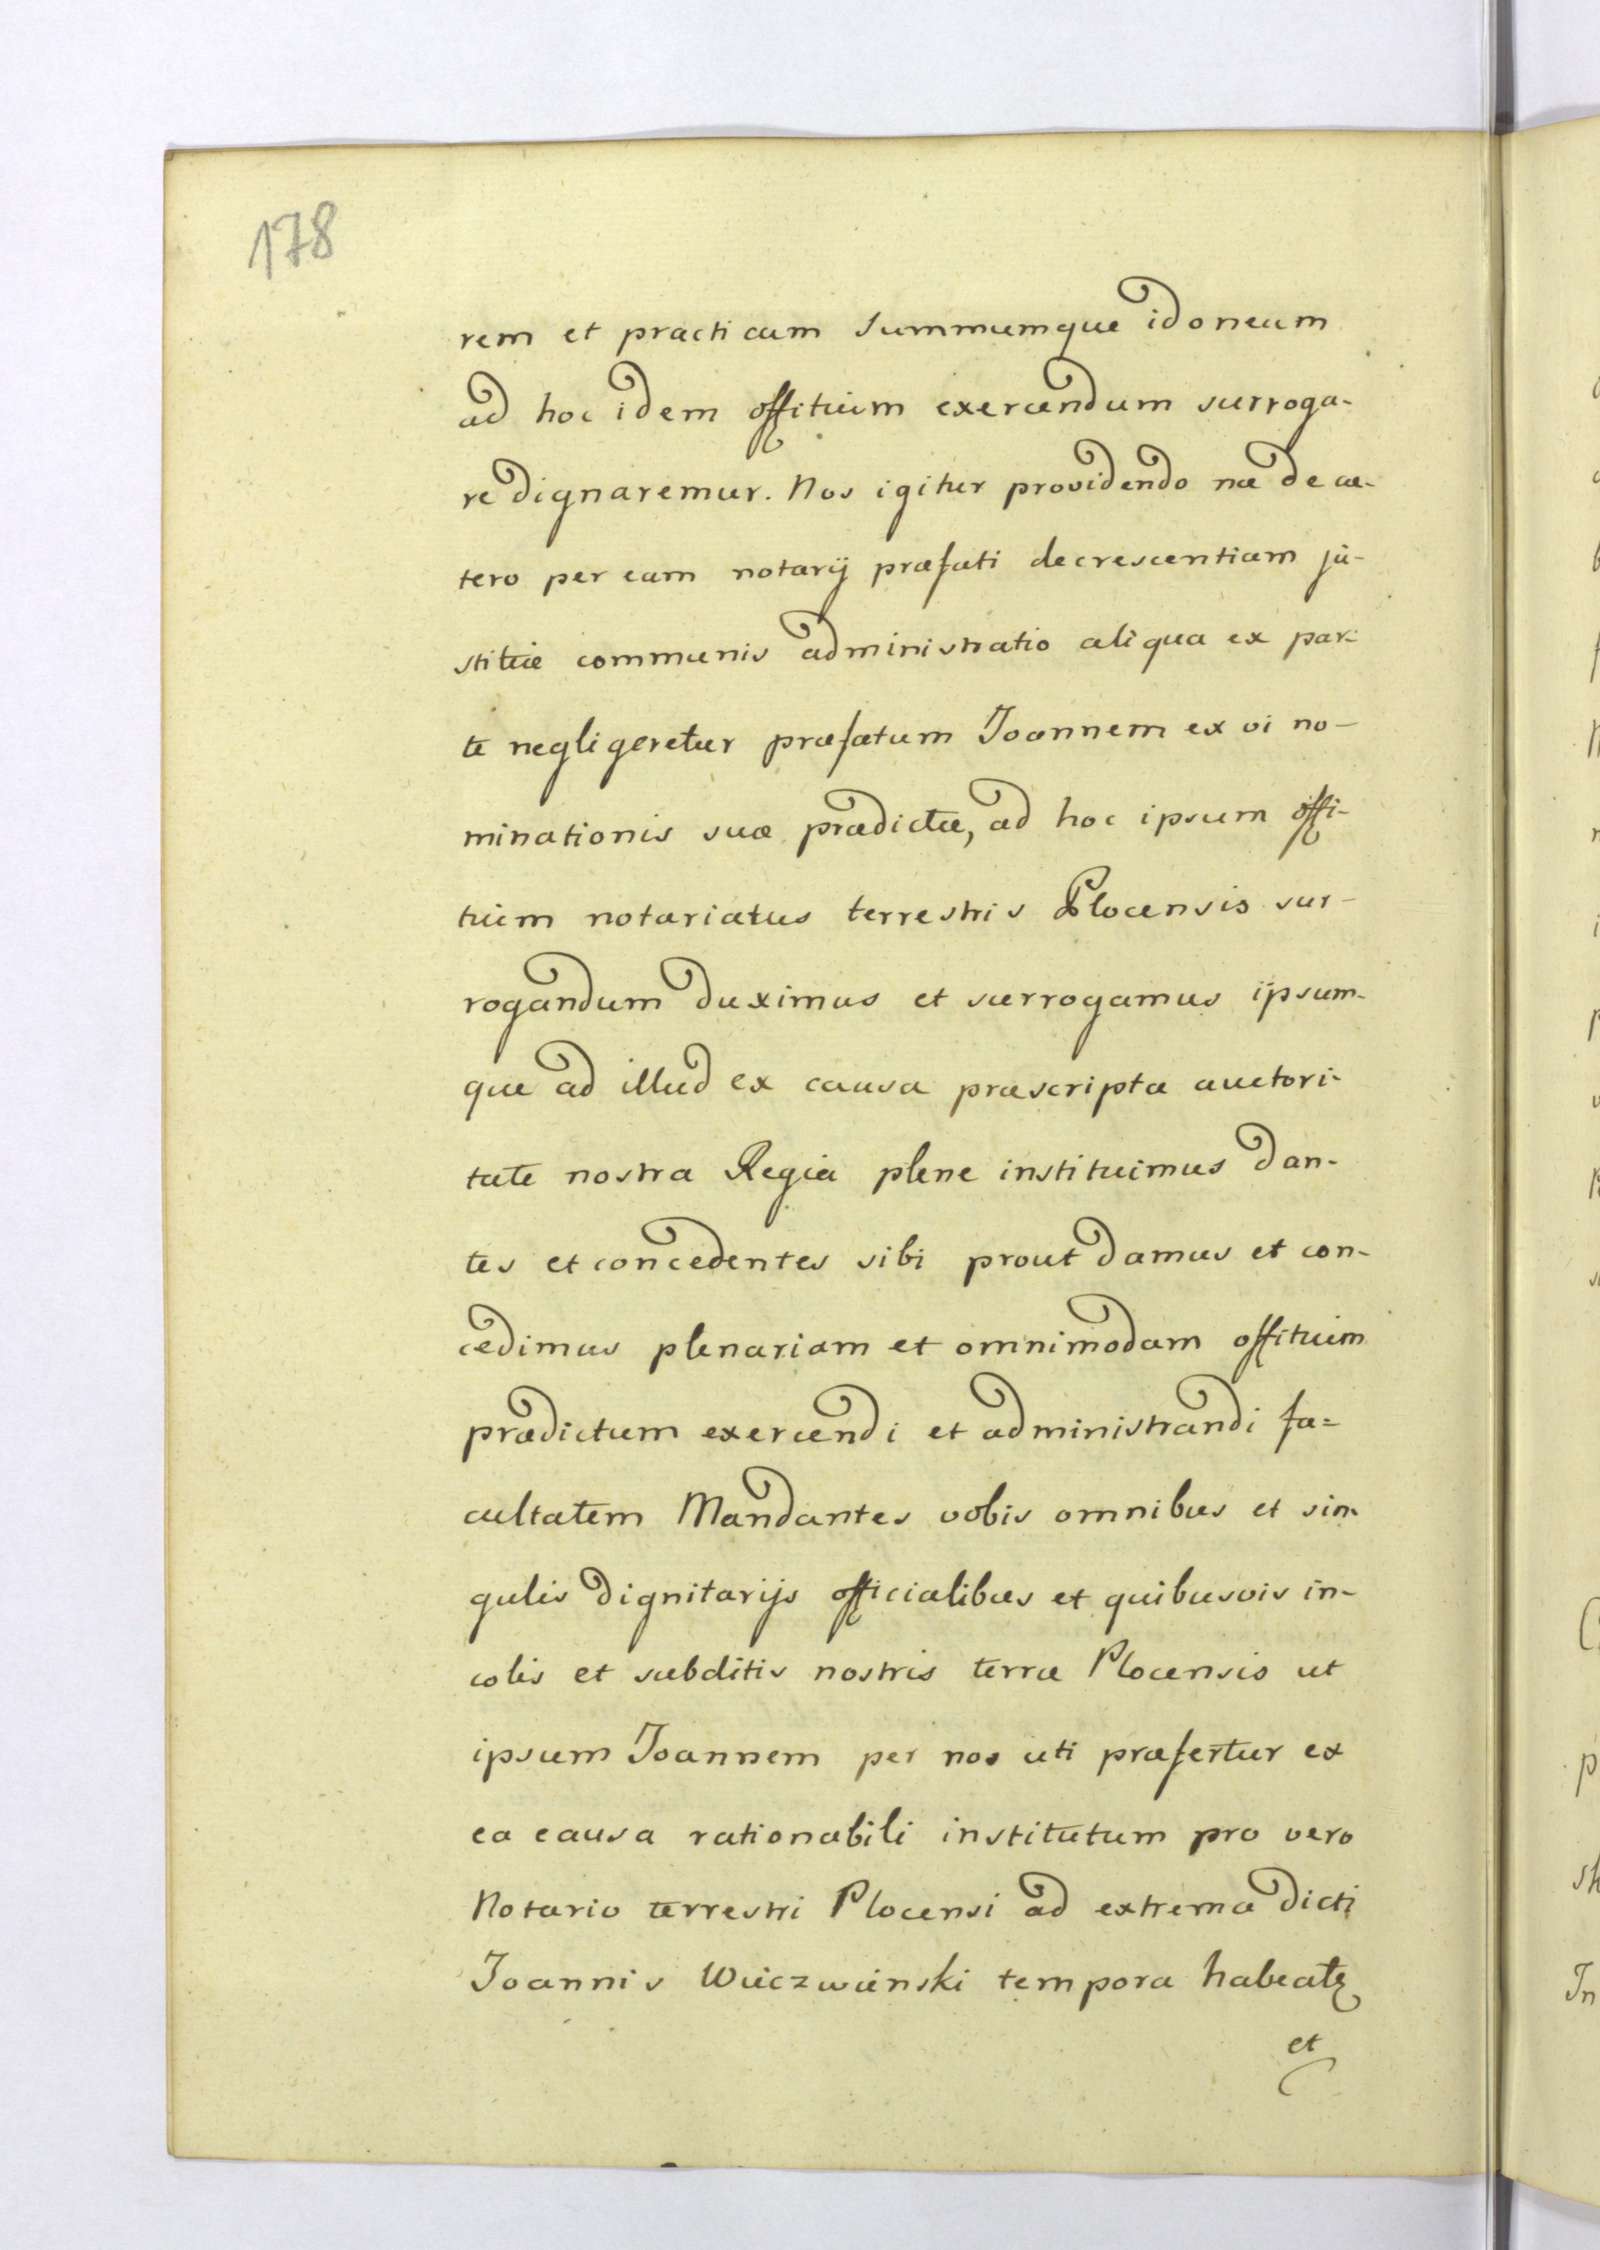 178
rem et practicum summumque idoneum
ad hoc idem offitium exercendum surroga-
re dignaremur. Nos igitur providendo ne de cæ-
tero per eam notarij præfati decrescentiam ju-
stitiæ communis administratio aliqua ex par-
te negligeretur præfatum Joannem ex vi no-
minationis suæ prædictæ, ad hoc ipsum offi-
tium notariatus terrestris Plocensis sur-
rogandum duximus et surrogamus ipsum-
que ad illud ex causa præscripta auctori-
tate nostra Regia plene instituimus dan-
tes et concedentes sibi prout damus et con-
cedimus plenariam et omnimodam offitium
prædictum exercendi et administrandi fa=
cultatem Mandantes vobis omnibus et sin-
gulis dignitarijs officialibus et quibusvis in-
colis et subditis nostris terræ Plocensis ut
ipsum Joannem per nos uti præfertur ex
ea causa rationabili institutum pro vero
Notario terrestri Plocensi ad extrema dicti
Joannis Wiczwinski tempora habeatis
et